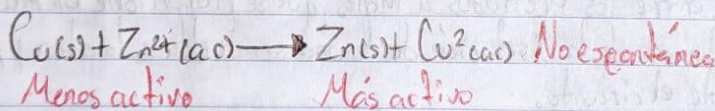 Cu(s) + Zn²⁺(ac) → Zn(s) + Cu²(ac) No espontánea
Menos activo Más activo